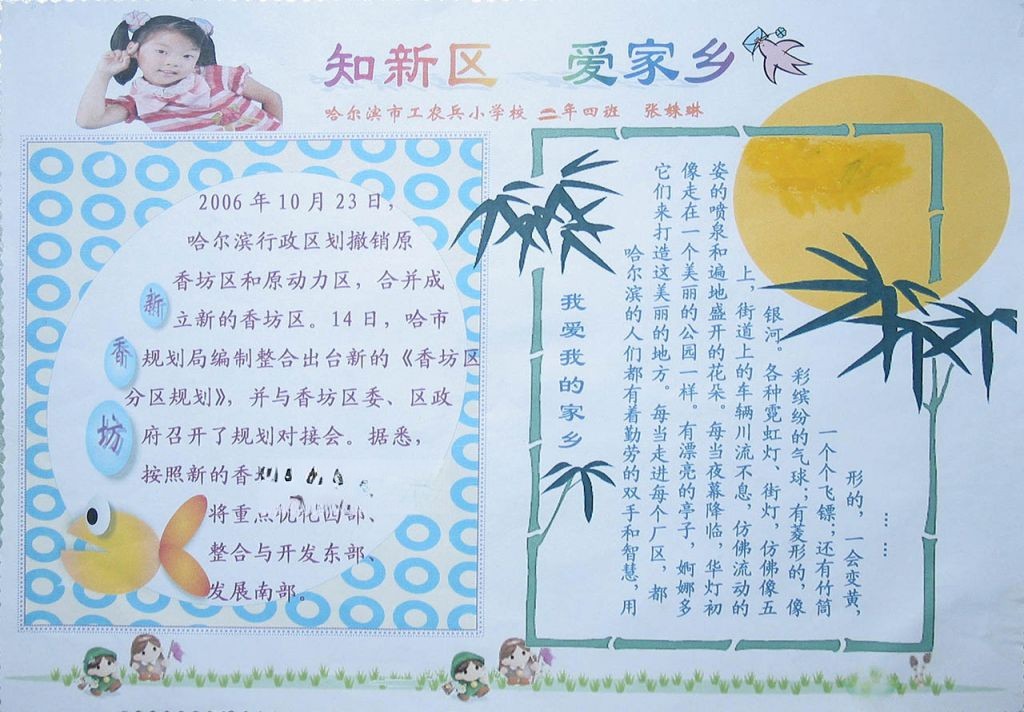 知新区 爱家乡
哈尔滨市工农兵小学校 二年四班 张姝琳
新香坊
2006年10月23日，
哈尔滨行政区划撤销原
香坊区和原动力区，合并成
立新的香坊区。14日，哈市
规划局编制整合出台新的《香坊区
分区规划》，并与香坊区委、区政
府召开了规划对接会。据悉，
按照新的香
将重点优化西部、
整合与开发东部、
发展南部。
我爱我的家乡
哈尔滨的人们都有着勤劳的双手和智慧，用
它们来打造这美丽的地方。每当走进每个厂区，都
像走在一个美丽的公园一样。有漂亮的亭子，婀娜多
姿的喷泉和遍地盛开的花朵。每当夜幕降临，华灯初
上，街道上的车辆川流不息，仿佛流动的
银河。各种霓虹灯、街灯，仿佛像五
彩缤纷的气球；有菱形的，像
一个个飞镖；还有竹筒
形的，一会变黄，
……